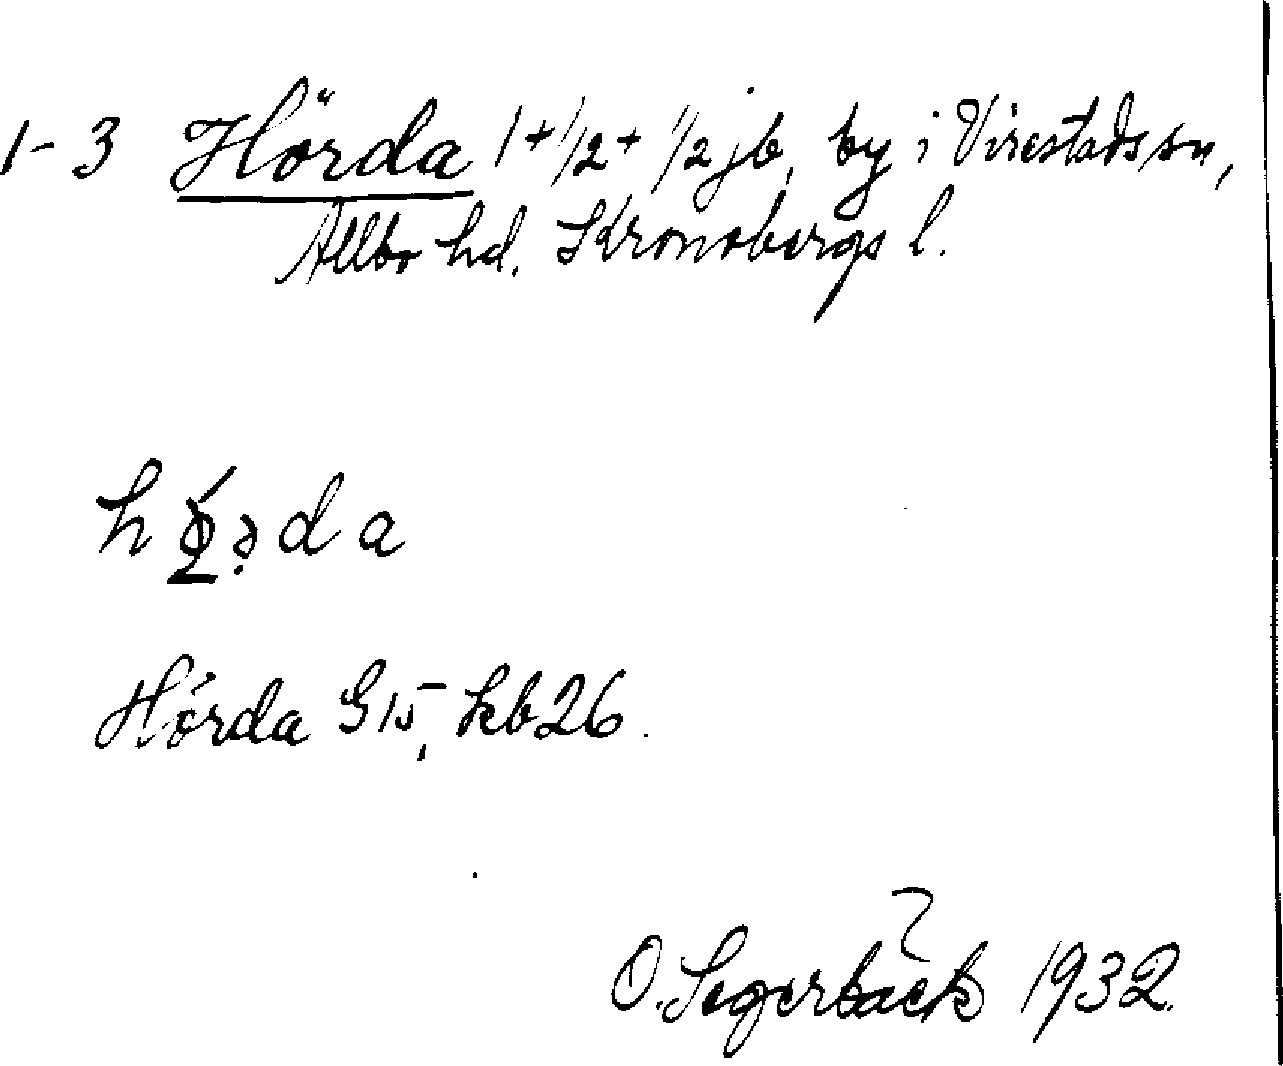 1-3 Hörda 1+1/2+1/2 jb, by i Virestads sn,
Allbo hd. Kronobergs l.
Hörda G15, kb26.
O. Segerbäck 1932